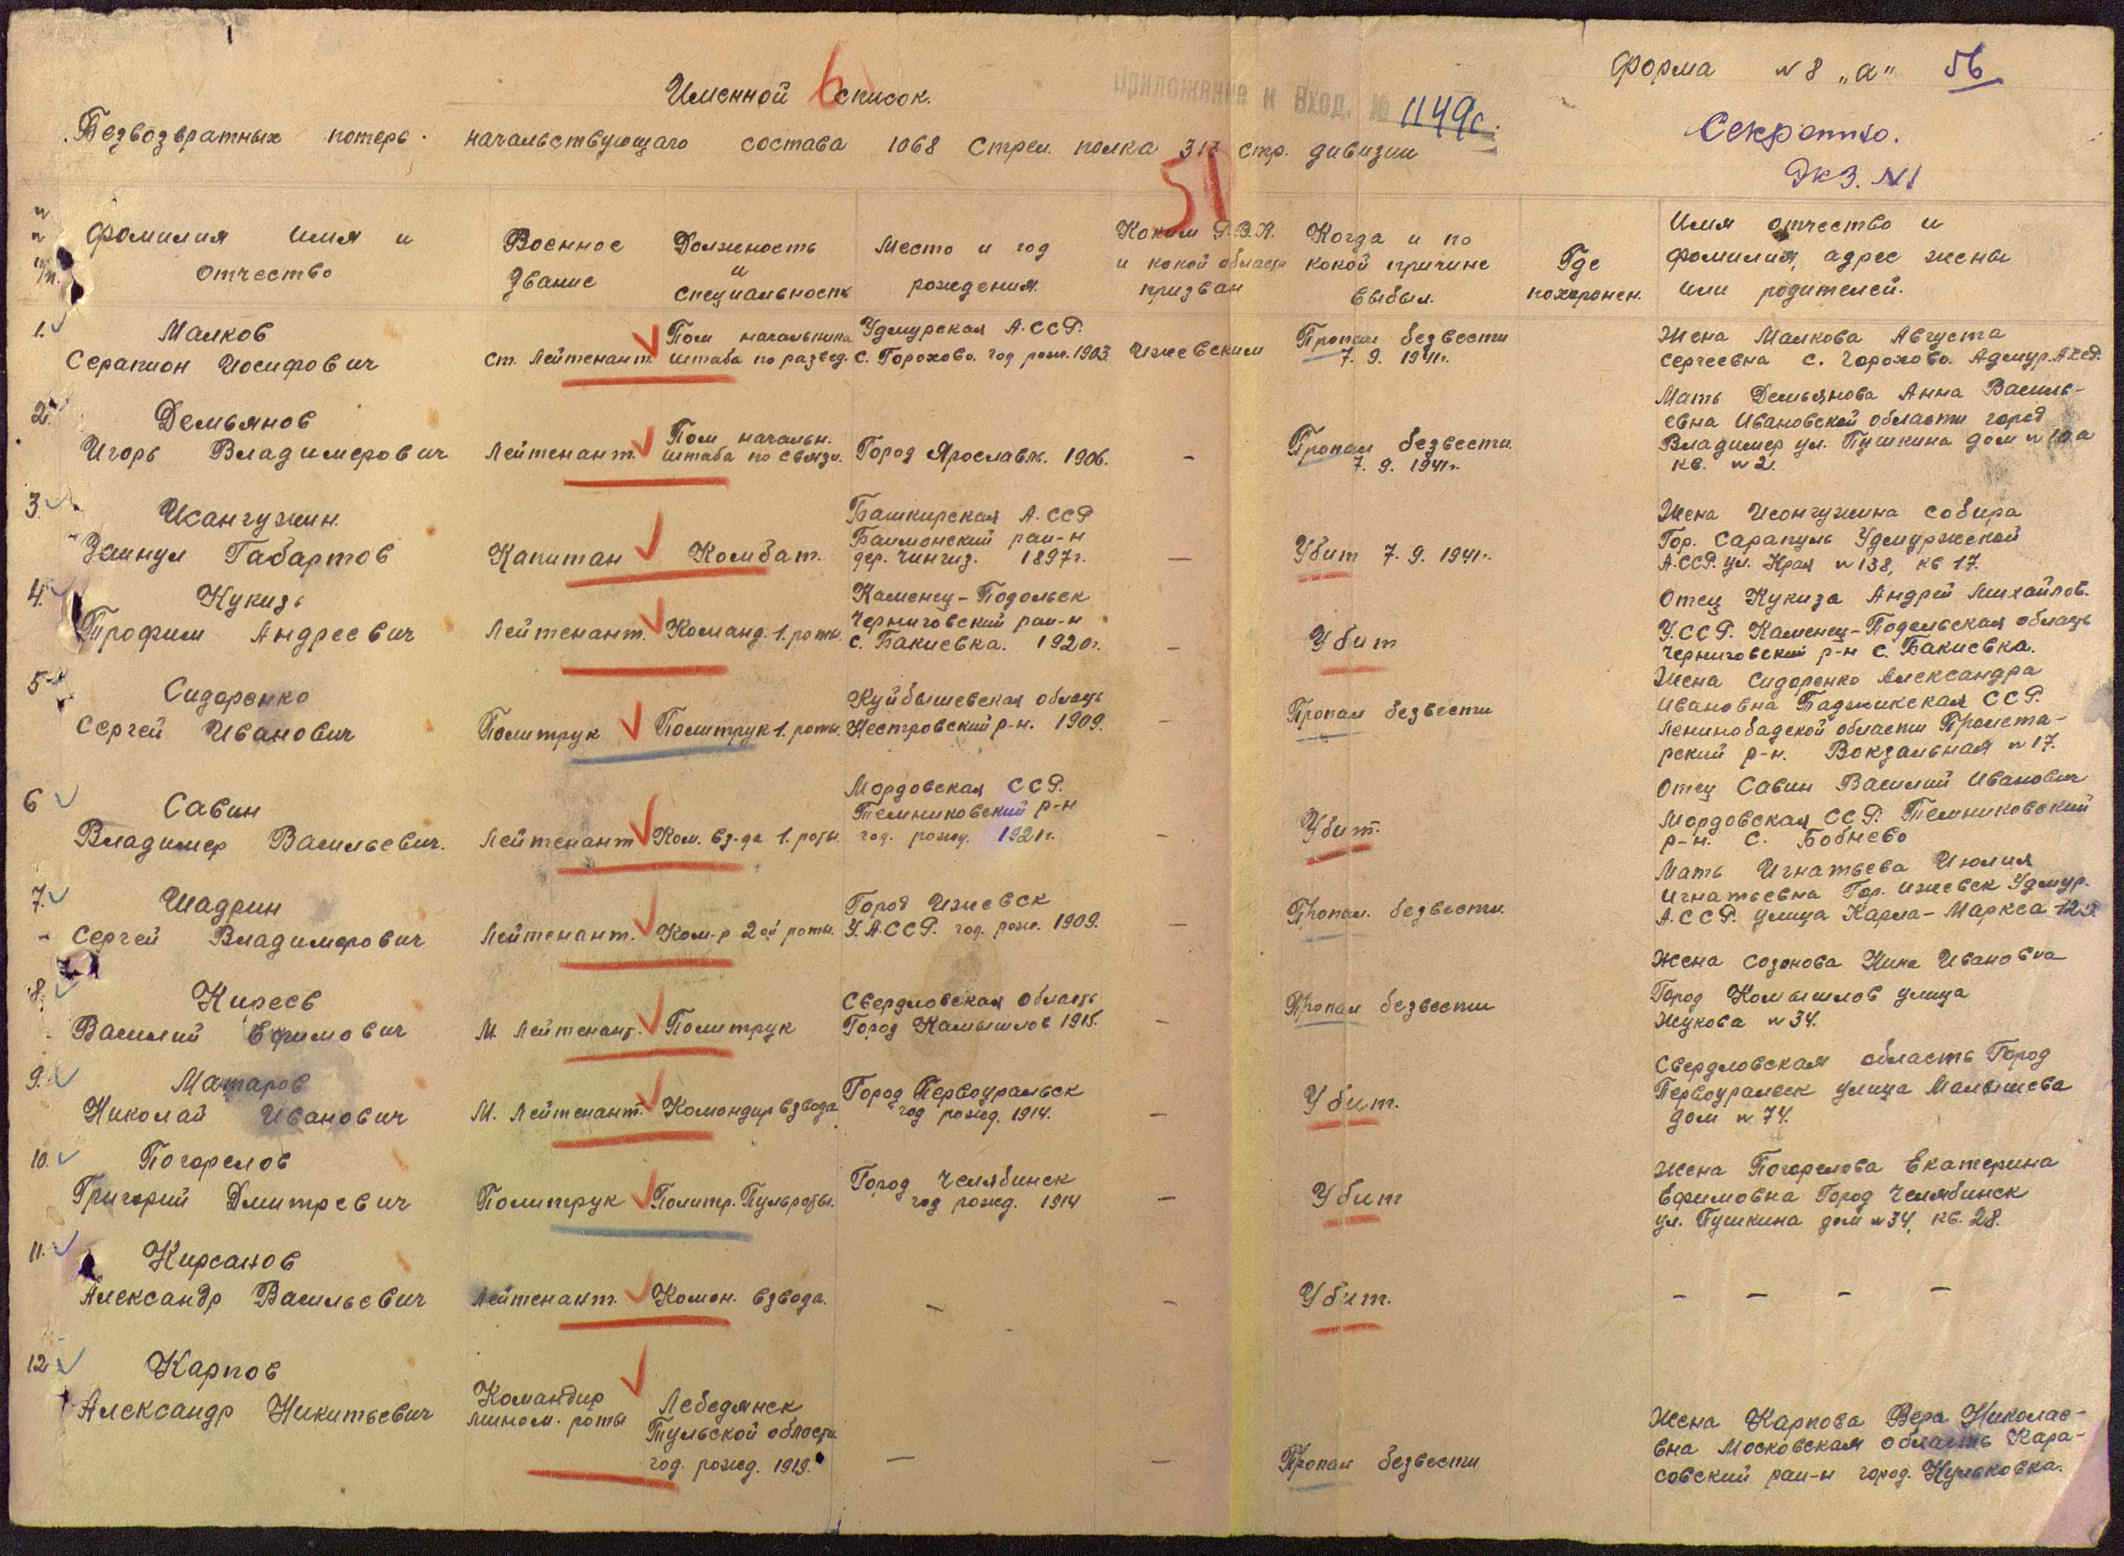 Форма №8 „а" 56
Именной список.
6
Приложение к Вход. № 1149с.
Безвозвратных потерь начальствующего состава 1068 Стрел. полка 313 стр. дивизии
Секретно.
Экз. №1
51
№ п/п.
Фамилия Имя и
отчество
Военное
звание
Должность
и
специальность
Место и год
рождения.
Каким Р.В.К.
и какой области
призван
Когда и по
какой причине
выбыл.
Где
похоронен.
Имя отчество и
фамилия, адрес жены
или родителей.
1.
Малков
Серапион Иосифович
Ст. Лейтенант.
Пом начальника
штаба по развед.
Удмурская А.ССР.
с. Горохово. год рож. 1903.
Ижевским
Пропал безвести
7. 9. 1941г.
Жена Малкова Августа
Сергеевна с. Горохово. Адмур. АССР.
2.
Демьянов
Игорь Владимерович
Лейтенант.
Пом начальн.
штаба по связи.
Город Ярославль. 1906.
-
Пропал безвести.
7. 9. 1941г.
Мать Демьянова Анна Василь-
евна Ивановской области город
Владимер ул. Пушкина дом №10а
кв. №2.
3.
Исангужин.
Зайнул Габартов
Капитан
Комбат.
Башкирская А.ССР
Баимонский раи-н
дер. Чингиз. 1897г.
-
Убит 7. 9. 1941г.
Жена Исонгужина Собира
Гор. Сарапуль Удмуржской
А.ССР. ул. Края №138, кв 17.
4.
Кукизь
Трофим Андреевич
Лейтенант.
Команд. 1. роты.
Каменец-Подольск
Черниговский раи-н
с. Бакиевка. 1920г.
-
Убит
Отец Кукиза Андрей Михайлов.
У.ССР. Каменец-Подельская область
Черниговский р-н с. Бакиевка.
5.
Сидоренко
Сергей Иванович
Политрук
Политрук 1. роты.
Куйбышевская область
Нестровский р-н. 1909.
-
Пропал безвести
Жена Сидоренко Александра
Ивановна Таджикская ССР.
Ленинобадской области Пролета-
рский р-н. Вокзальная №17.
6
Савин
Владимер Васильевич.
Лейтенант
Ком. вз-да 1. роты
Мордовская ССР.
Темниковский р-н
год. рожд. 1921г.
-
Убит.
Отец Савин Василий Иванович
Мордовская ССР. Темниковский
р-н. с. Бобнево
7.
Шадрин
Сергей Владимерович
Лейтенант.
Ком-р 2ой роты.
Город Ижевск
У.АССР. год. рож. 1909.
-
Пропал. безвести.
Мать Игнатьева Июлия
Игнатьевна Гор. Ижевск Удмур.
А.ССР. улица Карла-Маркса
8.
Киреев
Василий Ефимович
М. Лейтенант.
Политрук
Свердловская область
Город Камышлов 1915.
-
Пропал безвести
Жена Созонова Нина Ивановна
Город Комышлов улица
Жукова №34.
9.
Матаров
Николай Иванович
М. Лейтенант.
Командир взвода
Город Первоуральск
год рожд. 1914.
-
Убит.
Свердловская область Город
Первоуральск улица Малышева
дом №74.
10.
Погорелов
Григорий Дмитревич
Политрук
Политр. Пульроты.
Город Челябинск
год рожд. 1914
-
Убит
Жена Погорелова Екатерина
Ефимовна Город Челябинск
ул. Пушкина дом №34, кв. 28.
11.
Кирсанов
Александр Васильевич
Лейтенант.
Комон. взвода.
-
-
Убит.
- - - -
12
Карпов
Александр Никитьевич
Командир
мином. роты
Лебедянск
Тульской области
год. рожд. 1919.
-
-
Пропал безвести
Жена Карпова Вера Николае-
вна Московская область Кара-
совский раи-н город. Кульковка.